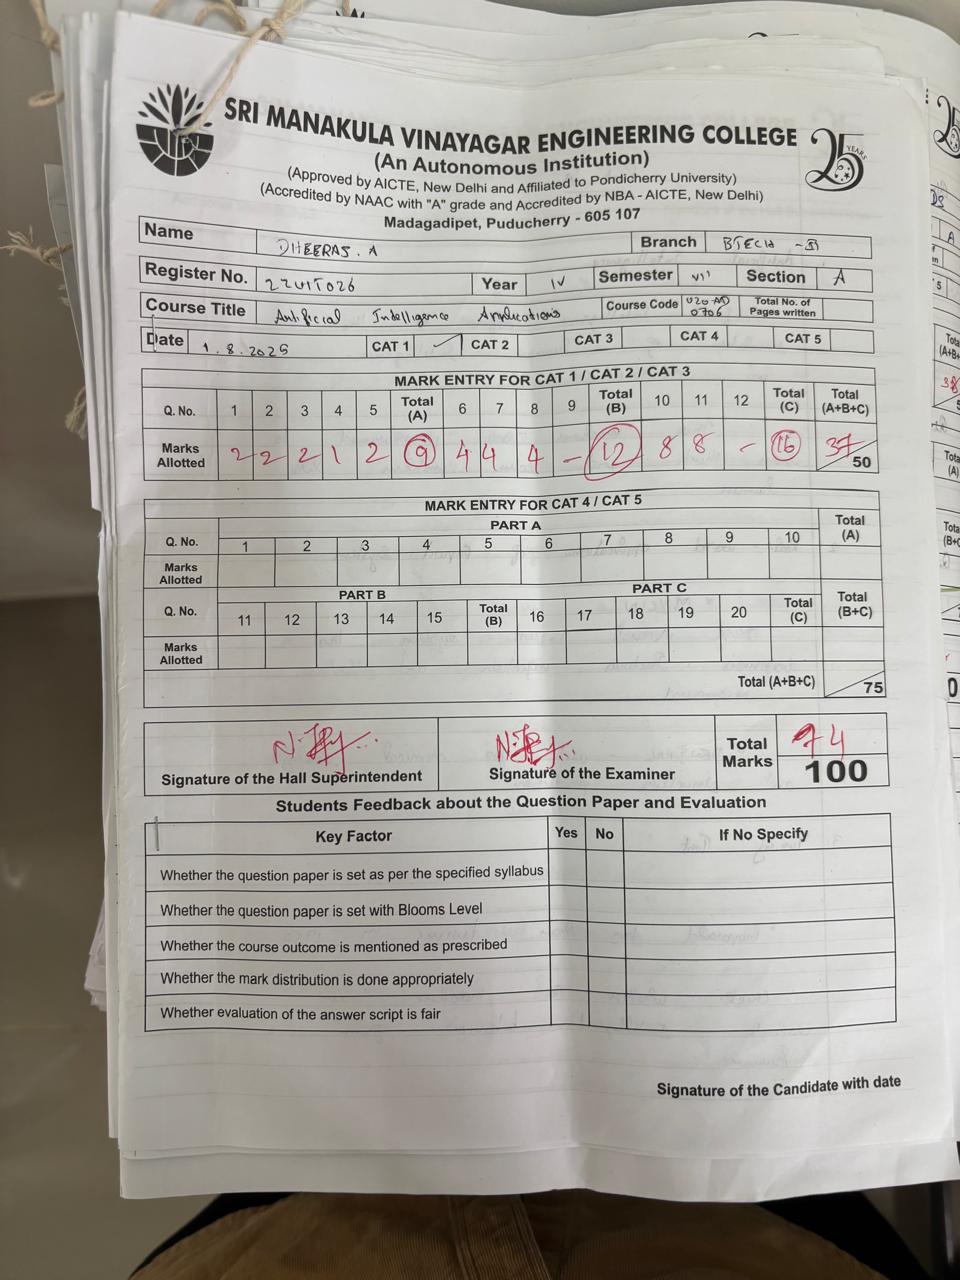 SRI MANAKULA VINAYAGAR ENGINEERING COLLEGE
(An Autonomous Institution)
(Approved by AICTE, New Delhi and Affiliated to Pondicherry University)
(Accredited by NAAC with "A" grade and Accredited by NBA - AICTE, New Delhi)
Madagadipet, Puducherry - 605 107
25 YEARS
Name DHEERAS. A Branch BTECH -
Register No. 22UIT026 Year IV Semester VII Section A
Course Title Artificial Intelligence Applications Course Code U20AD 0706 Total No. of Pages written
Date 1.8.2025 CAT 1 ✓ CAT 2 CAT 3 CAT 4 CAT 5
MARK ENTRY FOR CAT 1 / CAT 2 / CAT 3
Q. No. 1 2 3 4 5 Total (A) 6 7 8 9 Total (B) 10 11 12 Total (C) Total (A+B+C)
Marks Allotted 2 2 2 1 2 9 4 4 4 - 12 8 8 - 16 37/50
MARK ENTRY FOR CAT 4 / CAT 5
PART A
Q. No. 1 2 3 4 5 6 7 8 9 10 Total (A)
Marks Allotted
PART B PART C
Q. No. 11 12 13 14 15 Total (B) 16 17 18 19 20 Total (C) Total (B+C)
Marks Allotted
Total (A+B+C) 75
Signature of the Hall Superintendent Signature of the Examiner Total Marks 74 100
Students Feedback about the Question Paper and Evaluation
Key Factor Yes No If No Specify
Whether the question paper is set as per the specified syllabus
Whether the question paper is set with Blooms Level
Whether the course outcome is mentioned as prescribed
Whether the mark distribution is done appropriately
Whether evaluation of the answer script is fair
Signature of the Candidate with date